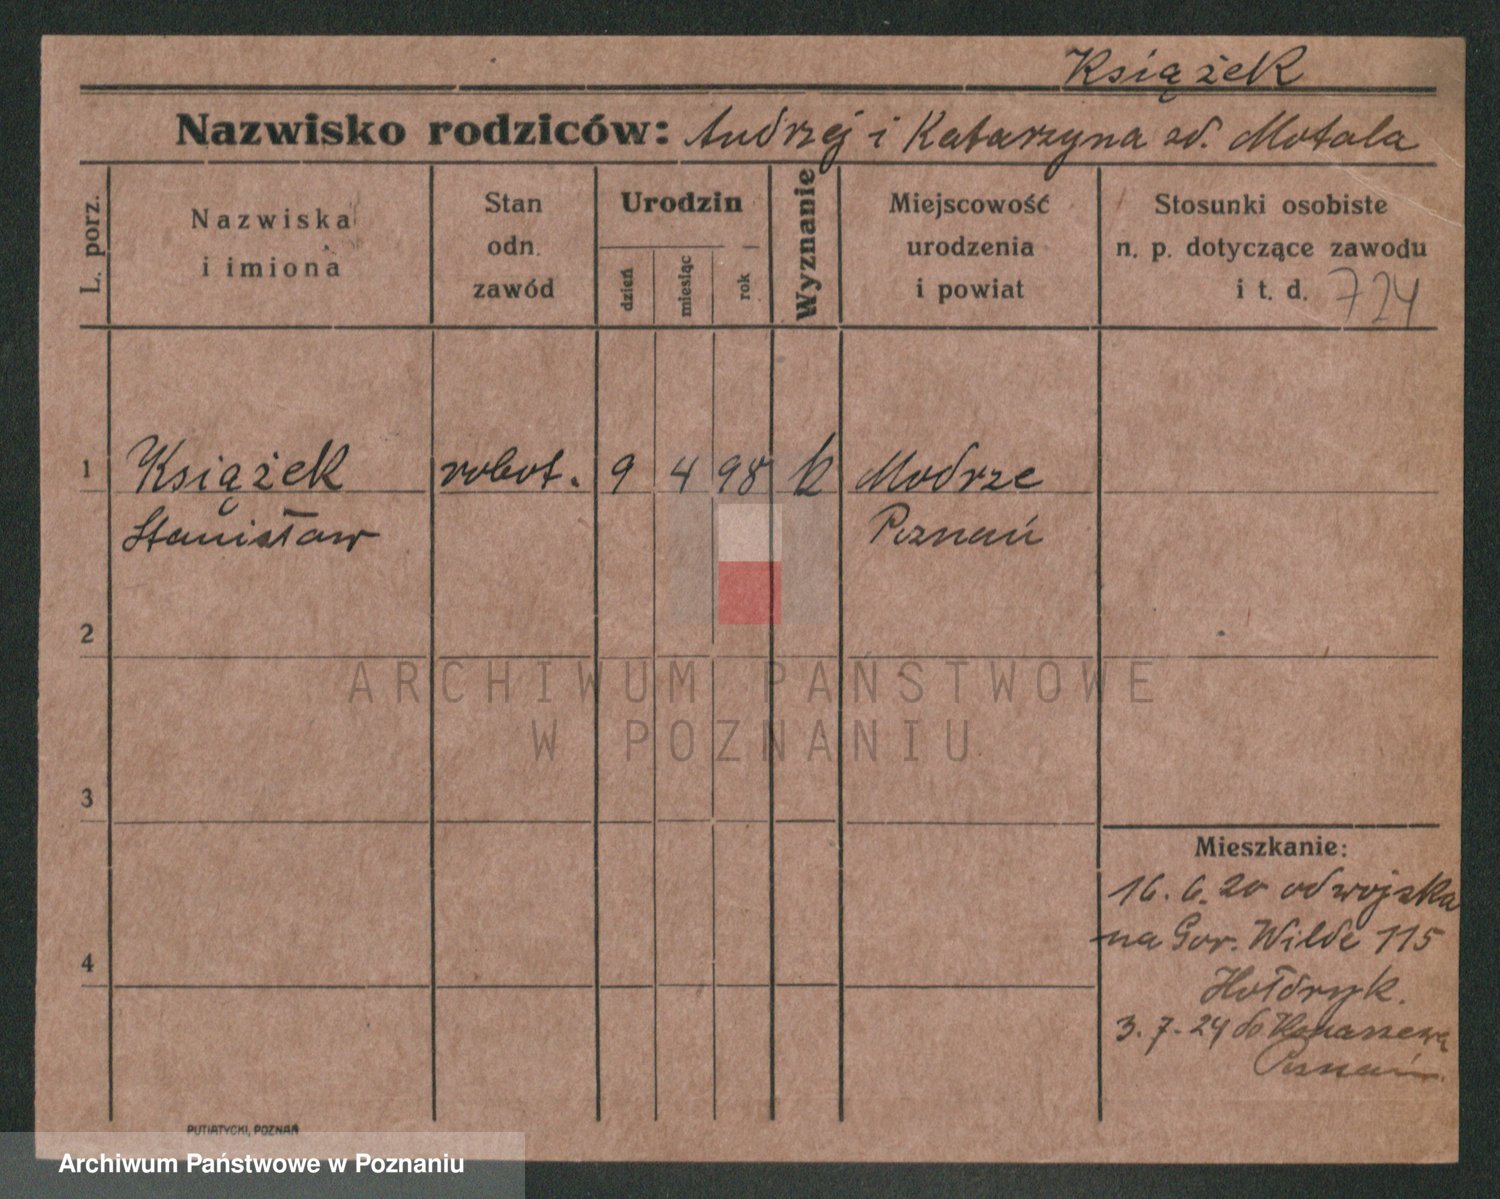 Książek
Nazwisko rodziców: Andrzej i Katarzyna zd. Motała
L. porz.
Nazwiska
i imiona
Stan
odn.
zawód
Urodzin
dzień
miesiąc
rok
Wyznanie
Miejscowość
urodzenia
i powiat
Stosunki osobiste
n. p. dotyczące zawodu
i t. d. 724
1 Książek robot. 9 4 98 k Modrze
Stanisław Poznań
2
ARCHIWUM PAŃSTWOWE
W POZNANIU
3
Mieszkanie:
16. 6. 20 od wojska
na Gor. Wilde 115
4
Hołdryk.
3. 7. 24 do
Poznań
PUTIATYCKI, POZNAŃ
Archiwum Państwowe w Poznaniu